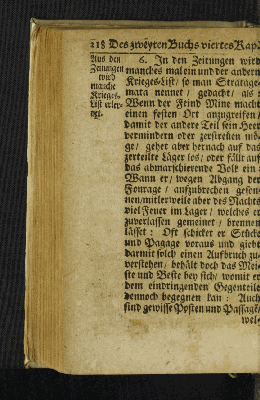 218 Des zweyten Buchs viertes Kap
Aus den
Zeitungen
wird
manche
Krieges-
List erler-
net.
6. In den Zeitungen wird
manches mal ein und der andern
Krieges-List/ so man Stratage-
mata nennet/ gedacht/ als:
Wenn der Feind Mine macht
einen festen Ort anzugreifen/
damit der andere Teil sein Heer
vermindern oder zerstreuen mö-
ge/ gehet aber hernach auf das
zerteilte Läger los/ oder fällt auf
das abmarschierende Volk ein:
Wann er/ wegen Abgang der
Fourage/ aufzubrechen geson-
nen/ mitlerweile aber des Nachts
viel Feuer im Lager/ welches er
zuverlassen gemeinet/ brennen
lässet: Oft schicket er Stücke
und Pagage voraus und giebt
darmit solch einen Aufbruch zu
verstehen/ behält doch das Mei-
ste und Beste bey sich/ womit er
dem eindringenden Gegenteile
dennoch begegnen kan: Auch
sind gewisse Posten und Passage/
wel-